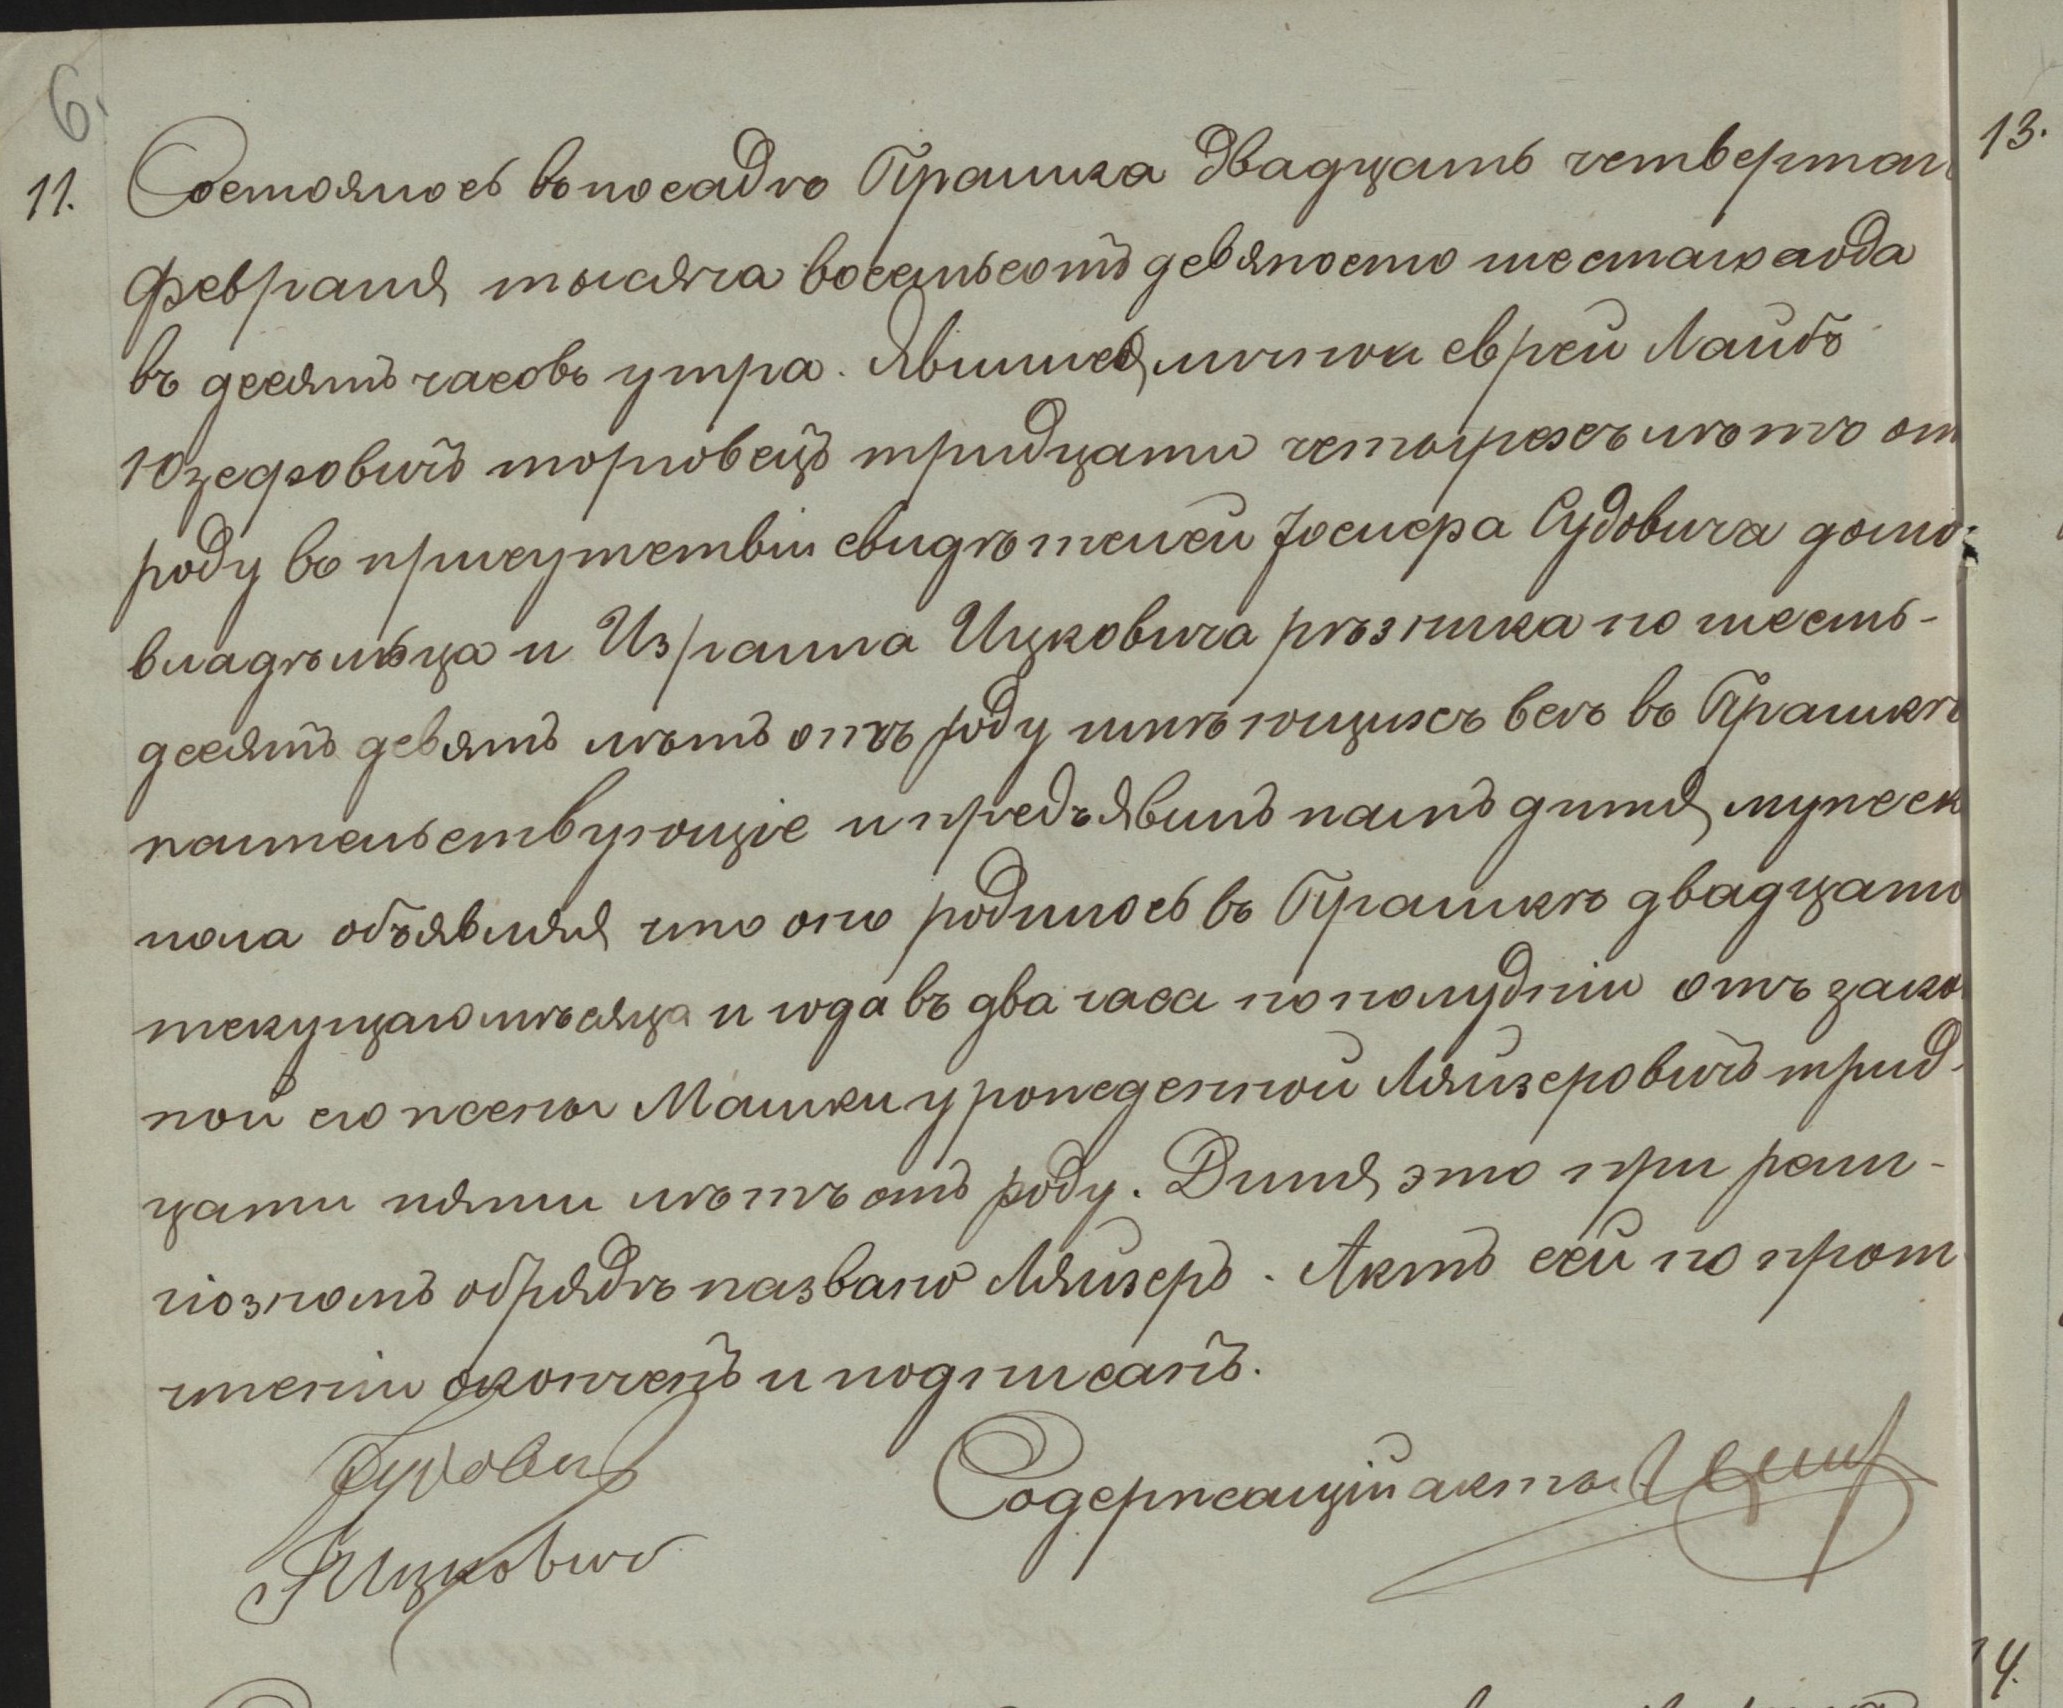 6.
11.
Состоялось въ посадѣ Прашка двадцать четвертаг
Февраля тысяча восемьсотъ девяносто шестаго года
въ десять часовъ утра. Явился лично еврей Лайбъ
Юзефовичъ торговецъ тридцати четырехъ лѣтъ от
роду въ присутствіи свидѣтелей Іосифа Судовича домо-
владѣльца и Израиля Ицковича рѣзника по шесть-
десятъ девять лѣтъ отъ роду имѣющихъ всѣ въ Прашкѣ
жительствующіе и предъявилъ намъ дитя мужеск
пола объявляя что оно родилось въ Прашкѣ двадцато
текущаго мѣсяца и года въ два часа пополудніи отъ закон
ной его жены Машки урожеденной Ляйзеровичъ трид-
цати пяти лѣтъ отъ роду. Дитя это при рели-
гіозномъ обрядѣ названо Ляйзеръ. Актъ сей по прот
чтеніи окончетъ и подписанъ.
Содержащій акты
Ицкович
13.
14.